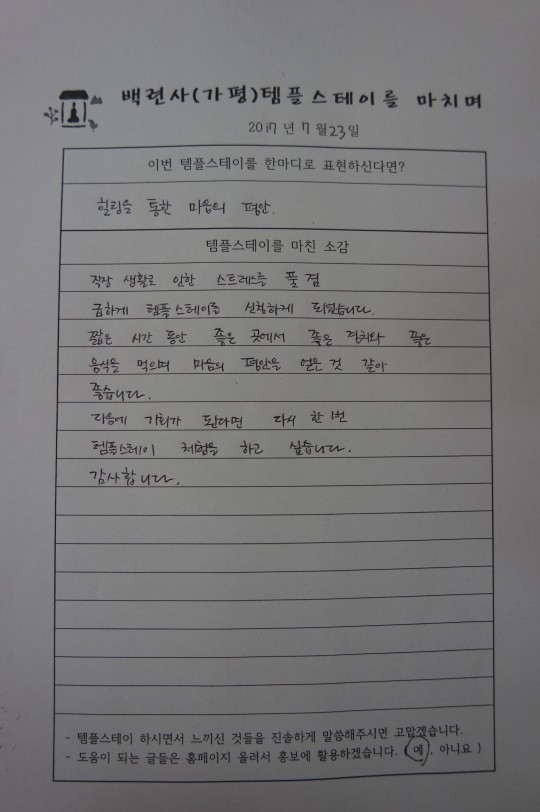 백련사(가평)템플스테이를 마치며
2017년 7월 23일
이번 템플스테이를 한마디로 표현하신다면?
힐링을 통한 마음의 평안.
템플스테이를 마친 소감
직장 생활로 인한 스트레스를 풀 겸
급하게 템플스테이를 신청하게 되었습니다.
짧은 시간 동안 좋은 곳에서 좋은 경치와 좋은
음식을 먹으며 마음의 평안을 얻은 것 같아
좋습니다.
다음에 기회가 된다면 다시 한 1번
템플스테이 체험을 하고 싶습니다.
감사합니다.
- 템플스테이 하시면서 느끼신 것들을 진솔하게 말씀해주시면 고맙겠습니다.
- 도움이 되는 글들은 홈페이지 올려서 홍보에 활용하겠습니다. (예, 아니요)